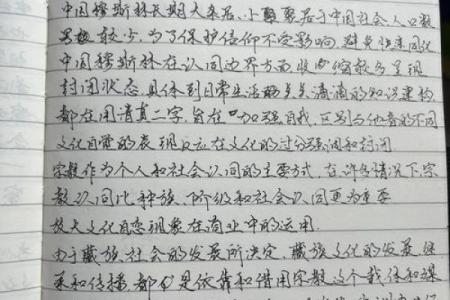 中国穆斯林长期大杂居、小聚居于中国社会,人口数
较少,为了保护信仰不受影响,避免快速同化
中国穆斯林在认同边界方面收缩较多呈现
封闭状态,具体到日常生活的点点滴滴的知识建构
都在用清真二字,旨在"加强自我,区别与他者的不同
文化自觉的表现反应在文化的过分强调和封闭
宗教作为个人和社会认同的主要方式,在许多情况下,宗
教认同比种族、阶级和社会认同更为重要
放大文化自恋现象在商业中的运用
由于藏族社会的发展所决定,藏族文化的发展、继
承和传播都是依靠和借用宗教这个载体和媒